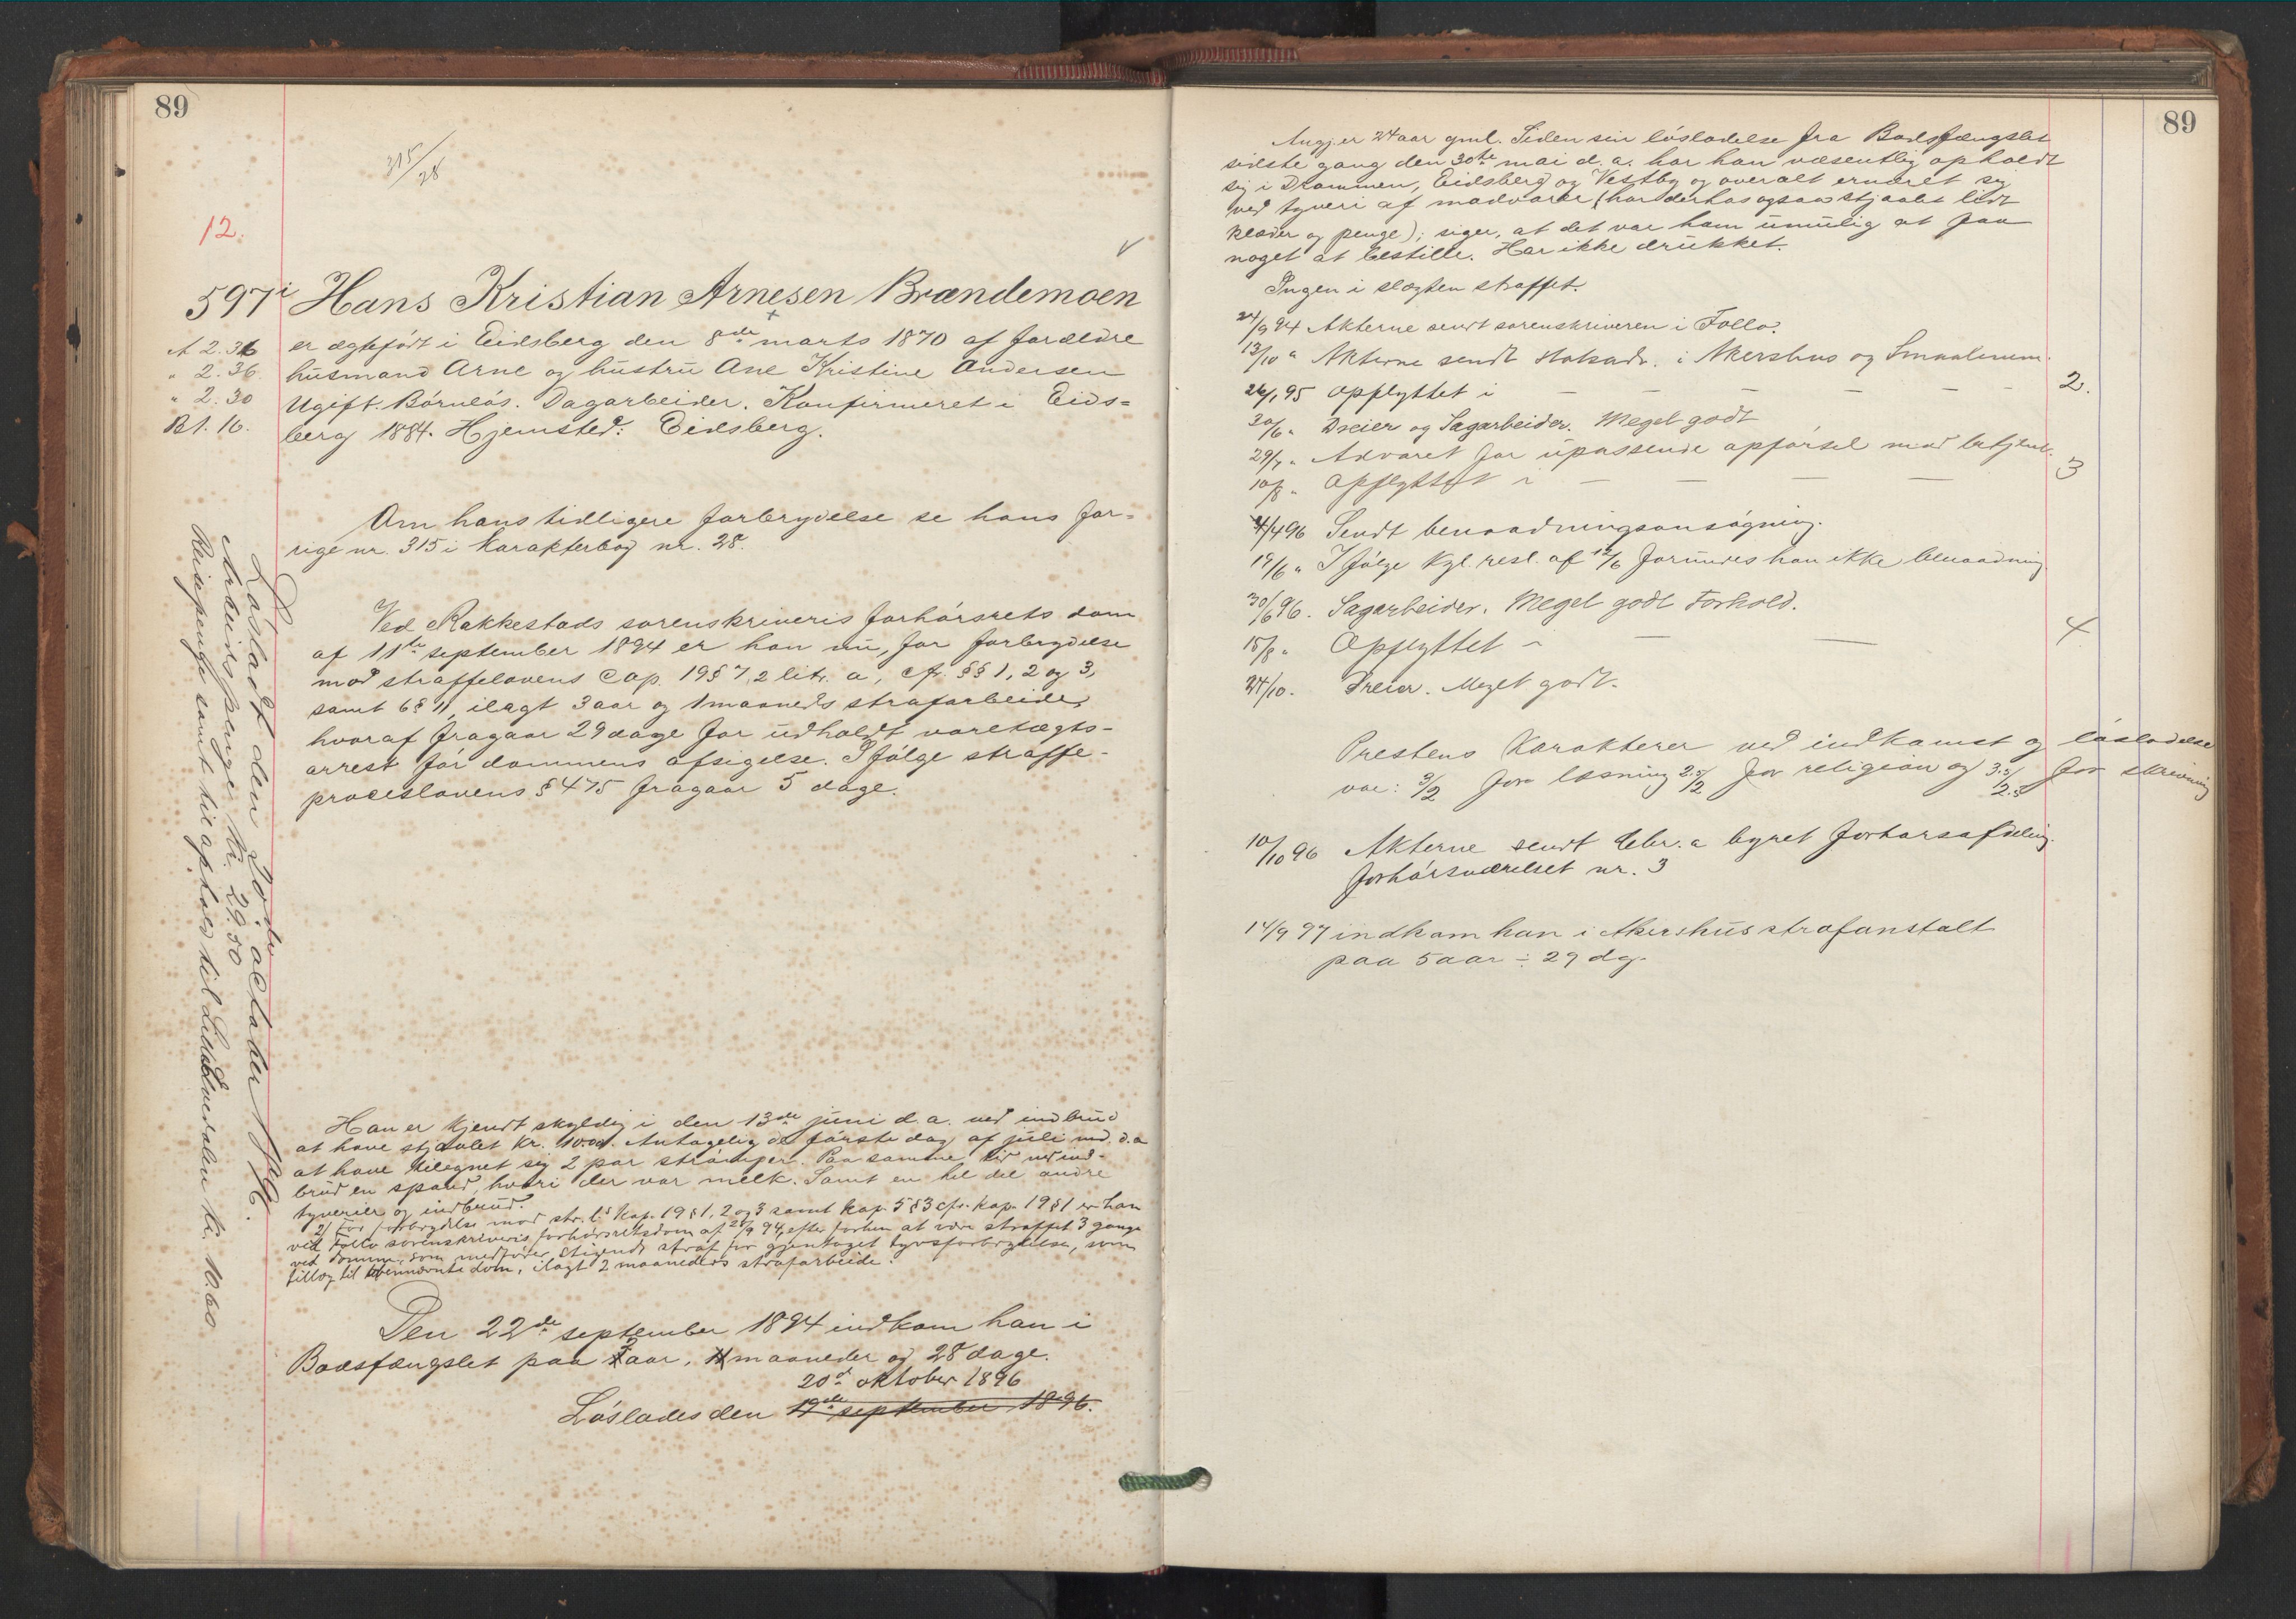 89
315/28
12.
597 Hans Kristian Arnesen Brændemoen
A 2.36
" 2.36.
" 2.30
B1. 16.
er ægtefødt i Eidsberg den 8de marts 1870 af forældre
husmand Arne og hustru Ane Kristine Andersen
Ugift. Börnlös. Dagarbeider. Konfirmeret i Eids=
berg 1884. Hjemsted: Eidsberg.
Om hans tidligere forbrydelse se hans for=
rige nr. 315 i karakterbog nr. 28.
Ved Rakkestads sorenskriveris forhörsrets dom
af 11te september 1894 er han nu, for forbrydelse
mod straffelovens Cap. 19 § 7, 2 litr. a, cfr. §§ 1, 2 og 3,
samt 6 § 11, ilagt 3 aar og 1 maaneds strafarbeide,
hvoraf fragaar 29 dage for udholdt varetægts-
arrest för dommens afsigelse. Ifölge straffe-
proceslovens § 475 fragaar 5 dage.
Han er kjendt skyldig i den 13de juni d.a. ved indbrud
at have stjaalet kr. 10.00. Antagelig de förste dag. af juli md. d.a
at have tilegnet sig 2 par strömper. Paa samme tid ved ind-
brud en spand, hvori der var melk. Samt en hel del andre
tyverier og indbrud.
2/ For forbrydelse mod str. l.s kap. 19 § 1, 2 og 3 samt kap. 5 § 3 cfr. kap. 19 § 1 er han
ved Follo sorenskriveris forhörsretsdom af 29/9 94, efter forhen at være straffet 3 gange
ved domme, som medförer stigende straf for gjentaget tyvsforbrydelse, som
tillæg til ovennævnte dom, ilagt 2 maaneders strafarbeide.
Den 22de september 1894 indkom han i
Bodsfængslet paa 2 aar, maaneder og 28 dage.
20de oktober 1896
Löslades den 19de september 1896.
Lösladt den 20de oktober 1896.
Arbeidspenge kr. 29.50
Reisepenge samt til ophold til kr. 10.60
89
Angj. er 24 aar gml. Siden sin lösladelse fra Bodsfængslet
sidste gang den 30te mai d.a. har han væsentlig opholdt
sig i Drammen, Eidsberg og Vestby og overalt ernæret sig
ved tyveri af madvarer (har derhos ogsaa stjaalet lidt
klæder og penge); siger, at det var ham umulig at faa
noget at bestille. Har ikke drukket.
Ingen i slægten straffet.
24/9 94 Akterne sendt sorenskriveren i Follo.
13/10 " Akterne sendt statsadv. i Akershus og Smaalenene.
26/1 95 Opflyttet i — — — — — 2.
30/6 " Dreier og Sagarbeider. Meget godt
29/7 " Advaret for upassende opförsel mod betjent.
10/8 " Opflyttet i — — — — 3
4/4 96 Sendt benaadningsansögning.
19/6 " Ifölge kgl. resl. af 12/6 forundes han ikke benaadning
30/6 96. Sagarbeider. Meget godt Forhold.
15/8 " Opflyttet i — — 4
24/10. Dreier. Meget godt.
Prestens Karakterer ved indkomst og lösladelse
var: 3/2 for læsning 2.5/2 for religion og 3.5/2.5 for skrivning
10/10 96 Akterne sendt Chr.a byret forhörsafdeling.
Forhörsværelset nr. 3
14/9 97 indkom han i Akershus strafanstalt
paa 5 aar ÷ 29 dg.